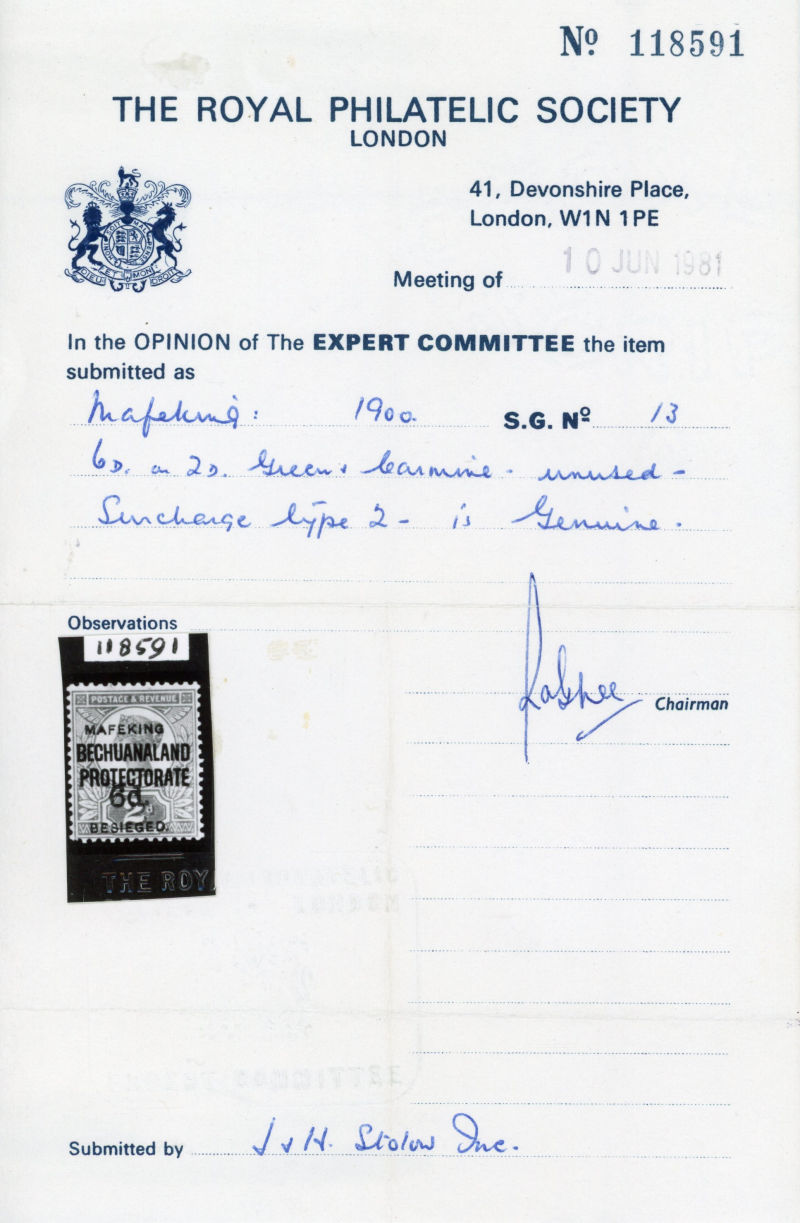 Nº 118591
THE ROYAL PHILATELIC SOCIETY
LONDON
41, Devonshire Place,
London, W1N 1PE
DIEU ET MON DROIT
Meeting of 10 JUN 1981
In the OPINION of The EXPERT COMMITTEE the item
submitted as
Mafeking: 1900. S.G. Nº 13
6D. on 2D. Green & Carmine - unused -
Surcharge type 2 - is Genuine.
Observations
118591
POSTAGE & REVENUE
MAFEKING
BECHUANALAND
PROTECTORATE
6d.
2d
BESIEGED.
THE ROY
Chairman
Submitted by J & H. Stolow Inc.